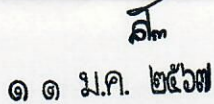 ๑ ๑ ม.ค. ๒๕๖๗